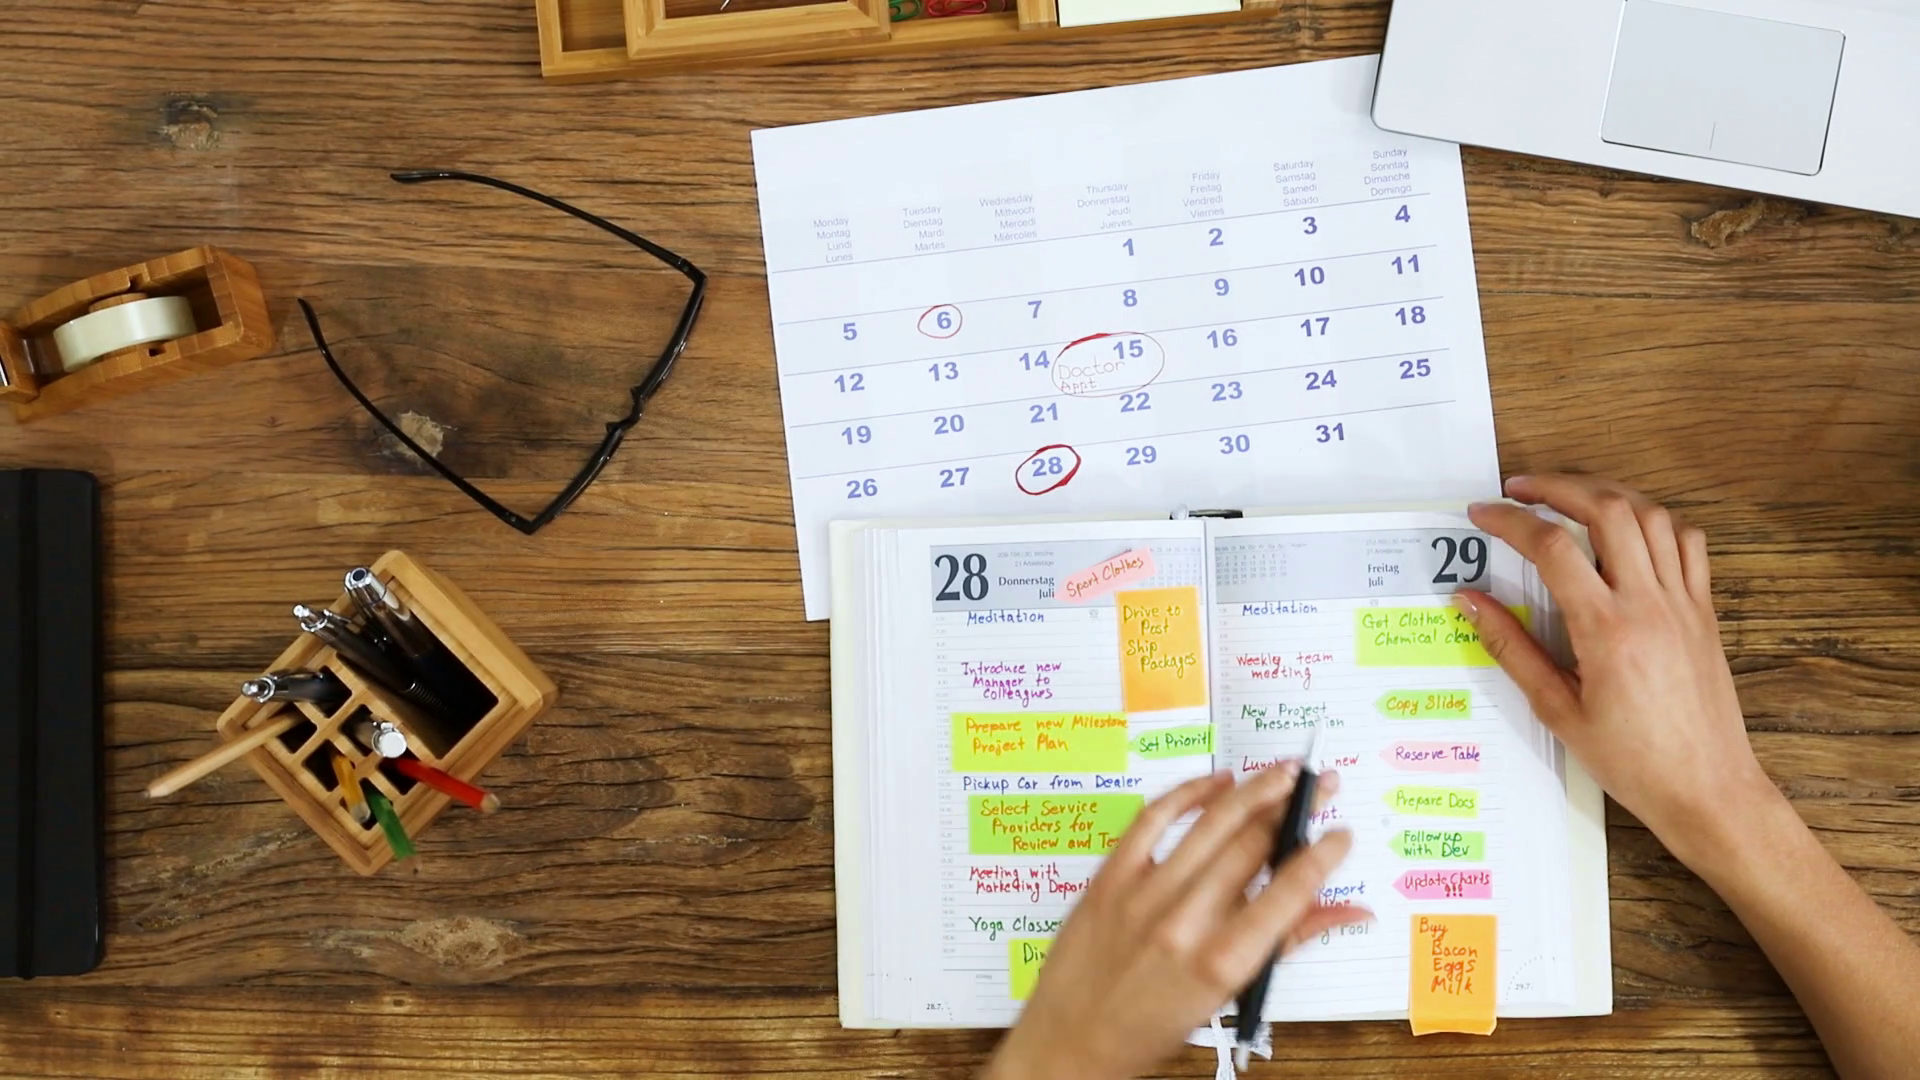 Monday
Montag
Lundi
Lunes
Tuesday
Dienstag
Mardi
Martes
Wednesday
Mittwoch
Mercedi
Miércoles
Thursday
Donnerstag
Jeudi
Jueves
Friday
Freitag
Vendredi
Viernes
Saturday
Samstag
Samedi
Sábado
Sunday
Sonntag
Dimanche
Domingo
1 2 3 4
5 6 7 8 9 10 11
12 13 14 15 16 17 18
Doctor
Appt
19 20 21 22 23 24 25
26 27 28 29 30 31
28
Donnerstag
Juli
Sport Clothes
Meditation
Drive to
Post
Ship
Packages
Introduce new
Manager to
Colleagues
Prepare new Milestone
Project Plan
Set Priorit
Pickup Car from Dealer
Select Service
Providers for
Review and Te
Meeting with
Marketing Depart
Yoga Classes
Din
28.7.
29
Freitag
Juli
Meditation
Get Clothes
Chemical clean
Weekly team
meeting
Copy Slides
New Project
Presentation
Reserve Table
Lunch new
Prepare Docs
ppt.
Follow up
with Dev
Update Charts
!!!
Report
Buy
Bacon
Eggs
Milk
29.7.